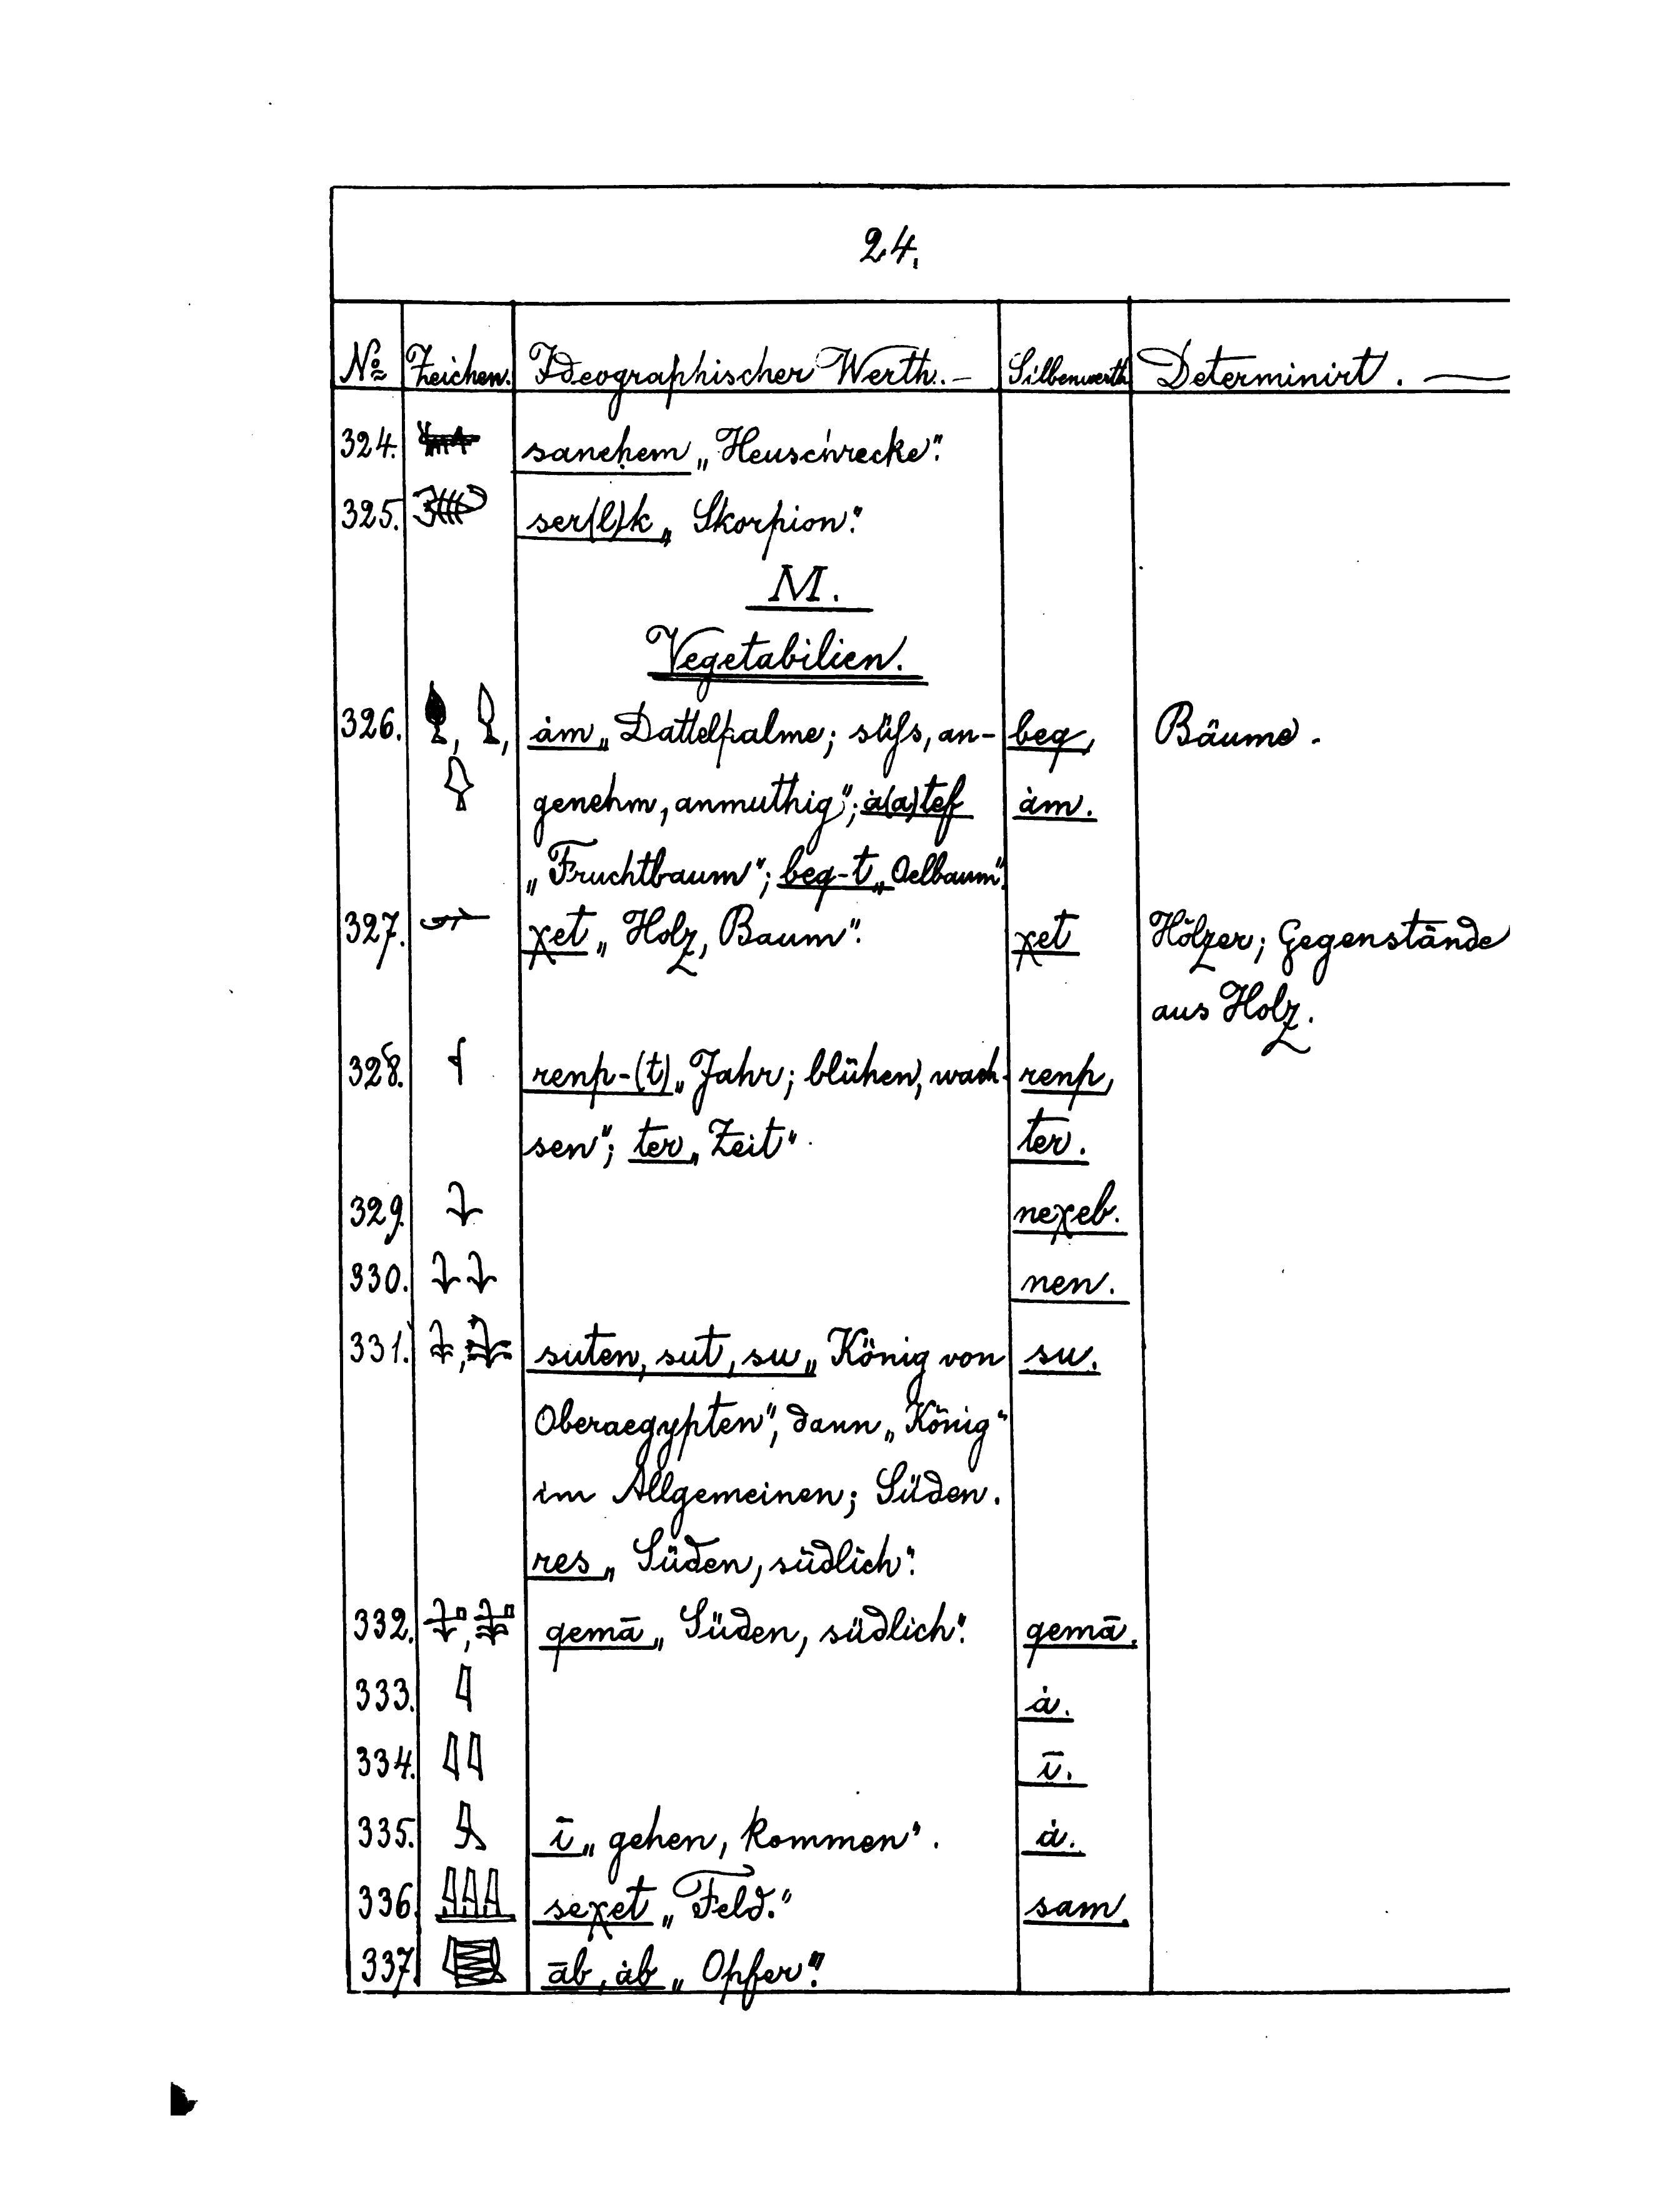 24.
No Zeichen. Ideographischer Werth. Silbenwerth Determinirt.
324. saneḥem „Heuschrecke".
325. ser(l)k „Skorpion".
M.
Vegetabilien.
326. ȧm „Dattelpalme; süfs, an- beq, Bäume.
genehm, anmuthig"; ȧ(a)tef ȧm.
„Fruchtbaum"; beq-t „Oelbaum".
327. χet „Holz, Baum". χet Hölzer; Gegenstände
aus Holz.
328. renp-(t) „Jahr; blühen, wach- renp,
sen"; ter „Zeit". ter.
329. neχeb.
330. nen.
331. suten, sut, su „König von su.
Oberaegypten", dann „König"
im Allgemeinen; Süden.
res „Süden, südlich".
332. qemā „Süden, südlich". qemā.
333. ȧ.
334. ī.
335. ī „gehen, kommen". ȧ.
336. seχet „Feld." sam.
337. āb, ȧb „Opfer".